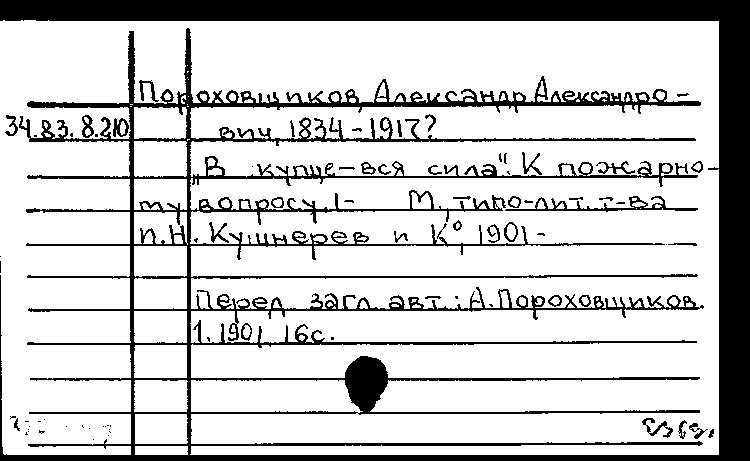 Пороховщиков, Александр Александро-
34.83.8.210 вич, 1834-1917?
„В купце-вся сила". К пожарно-
му вопросу. 1- М., типо-лит. т-ва
И.Н. Кушнерев и К°, 1901-
Перед загл. авт.: А. Пороховщиков.
1. 1901. 16 с.